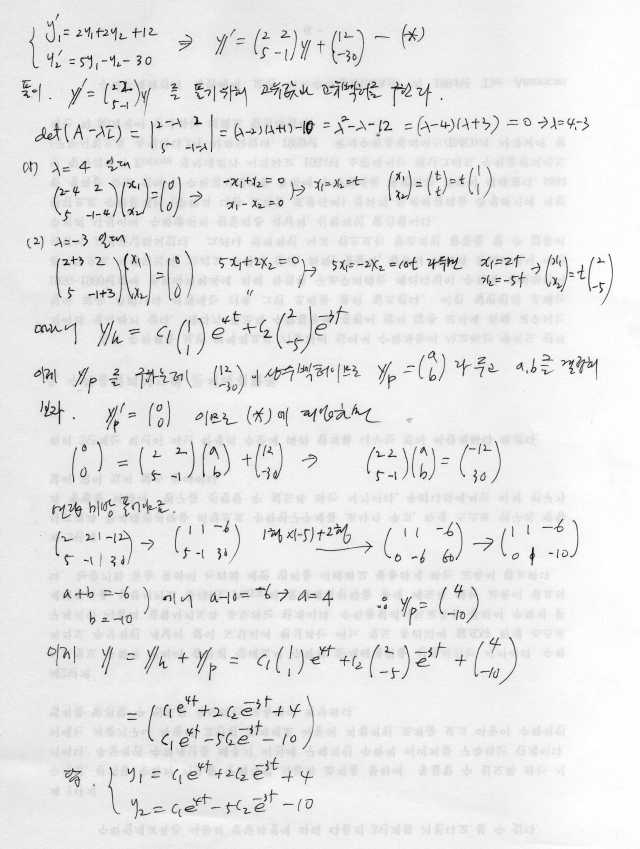 { y₁' = 2y₁+2y₂+12
y₂' = 5y₁-y₂-30 ⇒ y' = (2 2 / 5 -1)y + (12 / -30) — (*)
풀이. y' = (2 2 / 5 -1)y 를 풀기위해 고유값과 고유벡터를 구한다.
det(A-λI) = |2-λ 2 / 5 -1-λ| = (λ-2)(λ+1)-10 = λ²-λ-12 = (λ-4)(λ+3) = 0 ⇒ λ=4,-3
(1) λ=4 일때
(2-4 2 / 5 -1-4)(x₁ / x₂) = (0 / 0) ⇒ -x₁+x₂=0 / x₁-x₂=0 } x₁=x₂=t (x₁ / x₂) = (t / t) = t(1 / 1)
(2) λ=-3 일때
(2+3 2 / 5 -1+3)(x₁ / x₂) = (0 / 0) 5x₁+2x₂=0 } 5x₁=-2x₂=10t 라두면 x₁=2t / x₂=-5t ⇒ (x₁ / x₂) = t(2 / -5)
에서 y_h = c₁(1 / 1)e^{4t} + c₂(2 / -5)e^{-3t}
이제 y_p 를 구하는데 (12 / -30) 이 상수벡터이므로 y_p = (a / b) 라두고 a,b를 결정해
보자. y_p' = (0 / 0) 이므로 (*)에 대입하면
(0 / 0) = (2 2 / 5 -1)(a / b) + (12 / -30) ⇒ (2 2 / 5 -1)(a / b) = (-12 / 30)
(2 2 | -12 / 5 -1 | 30) → (1 1 -6 / 5 -1 30) 1행×(-5)+2행 → (1 1 -6 / 0 -6 60) → (1 1 -6 / 0 1 -10)
a+b = -6 / b = -10 } 에서 a-10=-6 ⇒ a=4 ∴ y_p = (4 / -10)
이제 y = y_h + y_p = c₁(1 / 1)e^{4t} + c₂(2 / -5)e^{-3t} + (4 / -10)
= (c₁e^{4t}+2c₂e^{-3t}+4 / c₁e^{4t}-5c₂e^{-3t}-10)
답. { y₁ = c₁e^{4t}+2c₂e^{-3t}+4
y₂ = c₁e^{4t}-5c₂e^{-3t}-10